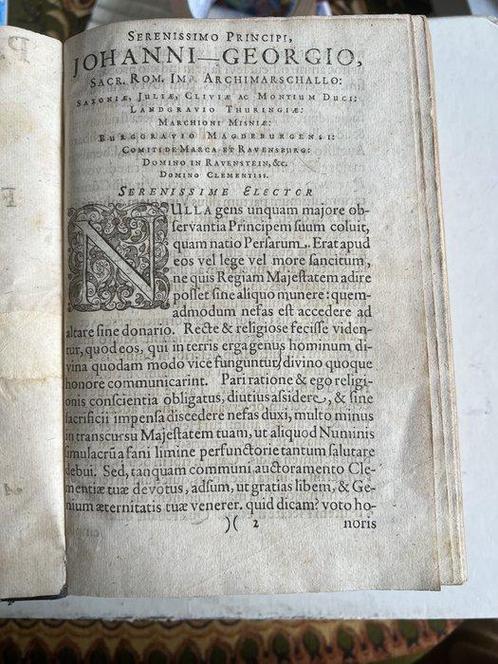 SERENISSIMO PRINCIPI,
JOHANNI—GEORGIO,
SACR. ROM. IM. ARCHIMARSCHALLO:
SAXONIÆ, JULIÆ, CLIVIÆ AC MONTIUM DUCI:
LANDGRAVIO THURINGIÆ:
MARCHIONI MISNIÆ:
BURGGRAVIO MAGDEBURGENSI:
COMITI DE MARCA ET RAVENSBURG:
DOMINO IN RAVENSTEIN, &c.
DOMINO CLEMENTISS.
SERENISSIME ELECTOR
NULLA gens unquam majore ob-
ſervantia Principem ſuum coluit,
quam natio Perſarum. Erat apud
eos vel lege vel more ſancitum,
ne quis Regiam Majeſtatem adire
poſſet ſine aliquo munere: quem-
admodum nefas eſt accedere ad
altare ſine donario. Recte & religioſe feciſſe viden-
tur, quod eos, qui in terris erga genus hominum di-
vina quodam modo vice funguntur/ divino quoque
honore communicarint. Pari ratione & ego religi-
onis conſcientia obligatus, diutius aſſidere, & ſine
ſacrificii impenſa diſcedere nefas duxi, multo minus
in transcurſu Majeſtatem tuam, ut aliquod Numinis
ſimulacrū a fani limine perfunctorie tantum ſalutare
debui. Sed, tanquam communi auctoramento Cle-
mentiæ tuæ devotus, adſum, ut gratias libem, & Ge-
nium æternitatis tuæ venerer. quid dicam? voto ho-
)( 2 noris